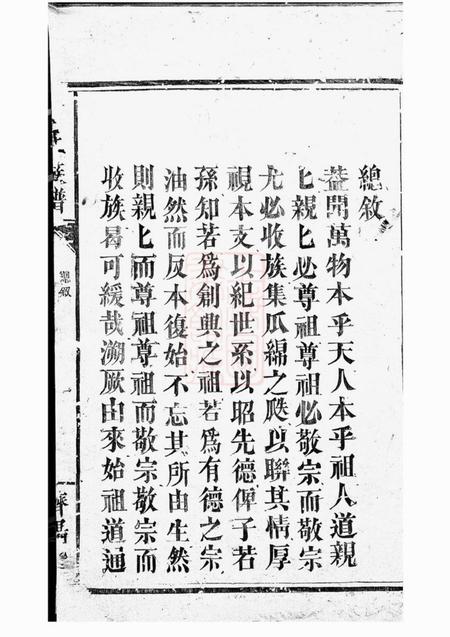 總敘
葢聞萬物本乎天人本乎祖人道親
匕親匕必尊祖尊祖必敬宗而敬宗
尤必收族集瓜綿之瓞以聯其情厚
視本支以紀世系以昭先德俾子若
孫知若爲創興之祖若爲有德之宗
油然而反本復始不忘其所由生然
則親匕而尊祖尊祖而敬宗敬宗而
收族曷可緩哉溯厥由來始祖道通
族譜
總敘